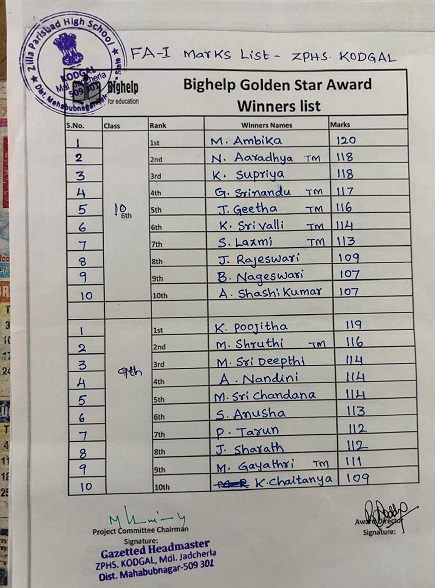 Zilla Parishad High School
KODGAL
Mdl. Jadcherla
509 301
Dist. Mahabubnagar
FA-I Marks List - ZPHS. KODGAL
Bighelp
for education
Bighelp Golden Star Award
Winners list
S.No. Class Rank Winners Names Marks
1 1st M. Ambika 120
2 2nd N. Aaradhya TM 118
3 3rd K. Supriya 118
4 4th G. Srinandu TM 117
5 10 6th 5th J. Geetha TM 116
6 6th K. Srivalli TM 114
7 7th S. Laxmi TM 113
8 8th J. Rajeswari 109
9 9th B. Nageswari 107
10 10th A. Shashi Kumar 107
1 1st K. Poojitha 119
2 2nd M. Shruthi TM 116
3 9th 3rd M. Sri Deepthi 114
4 4th A. Nandini 114
5 5th M. Sri Chandana 114
6 6th S. Anusha 113
7 7th P. Tarun 112
8 8th J. Sharath 112
9 9th M. Gayathri TM 111
10 10th K. Chaitanya 109
Project Committee Chairman
Signature:
Award Director
Signature:
Gazetted Headmaster
ZPHS. KODGAL, Mdl. Jadcherla
Dist. Mahabubnagar-509 301